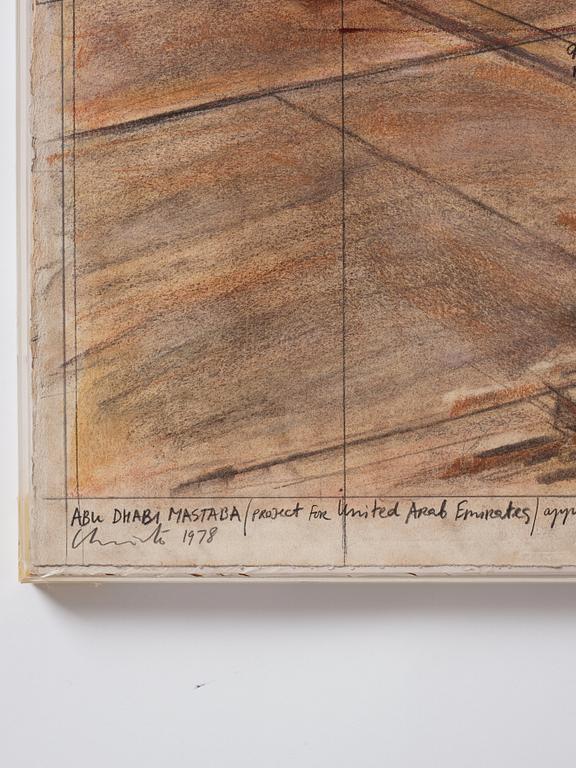 ABU DHABI MASTABA (PROJECT FOR United Arab Emirates) app
Christo 1978